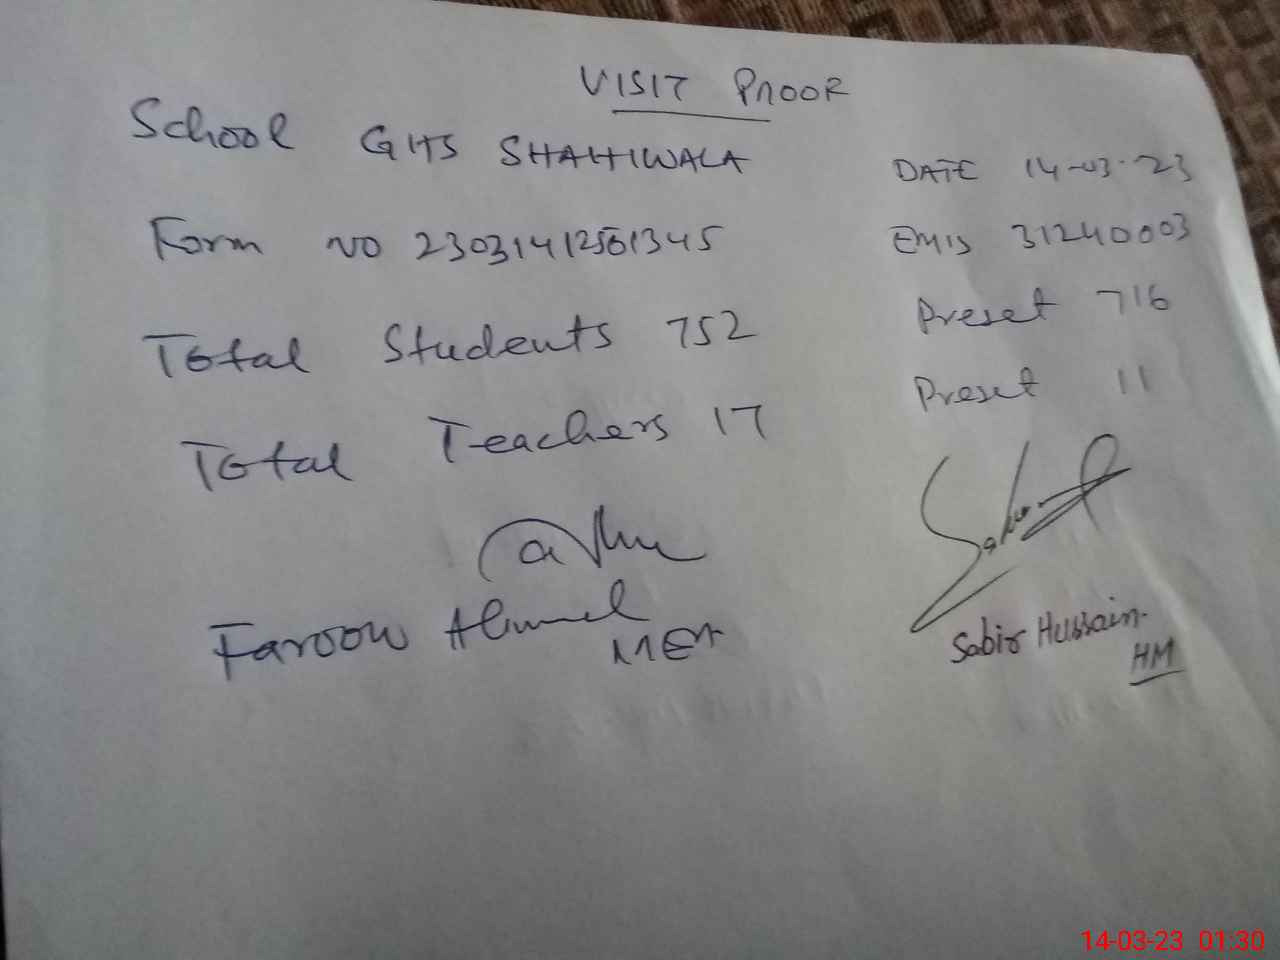 VISIT PROOF
School GHS SHAHWALA DATE 14-03-23
Form NO 23031412501345 EMIS 31240003
Total Students 752 Preset 716
Total Teachers 17 Preset 11
Farooq Ahmed Sabir Hussain.
MEA HM
14-03-23 01:30